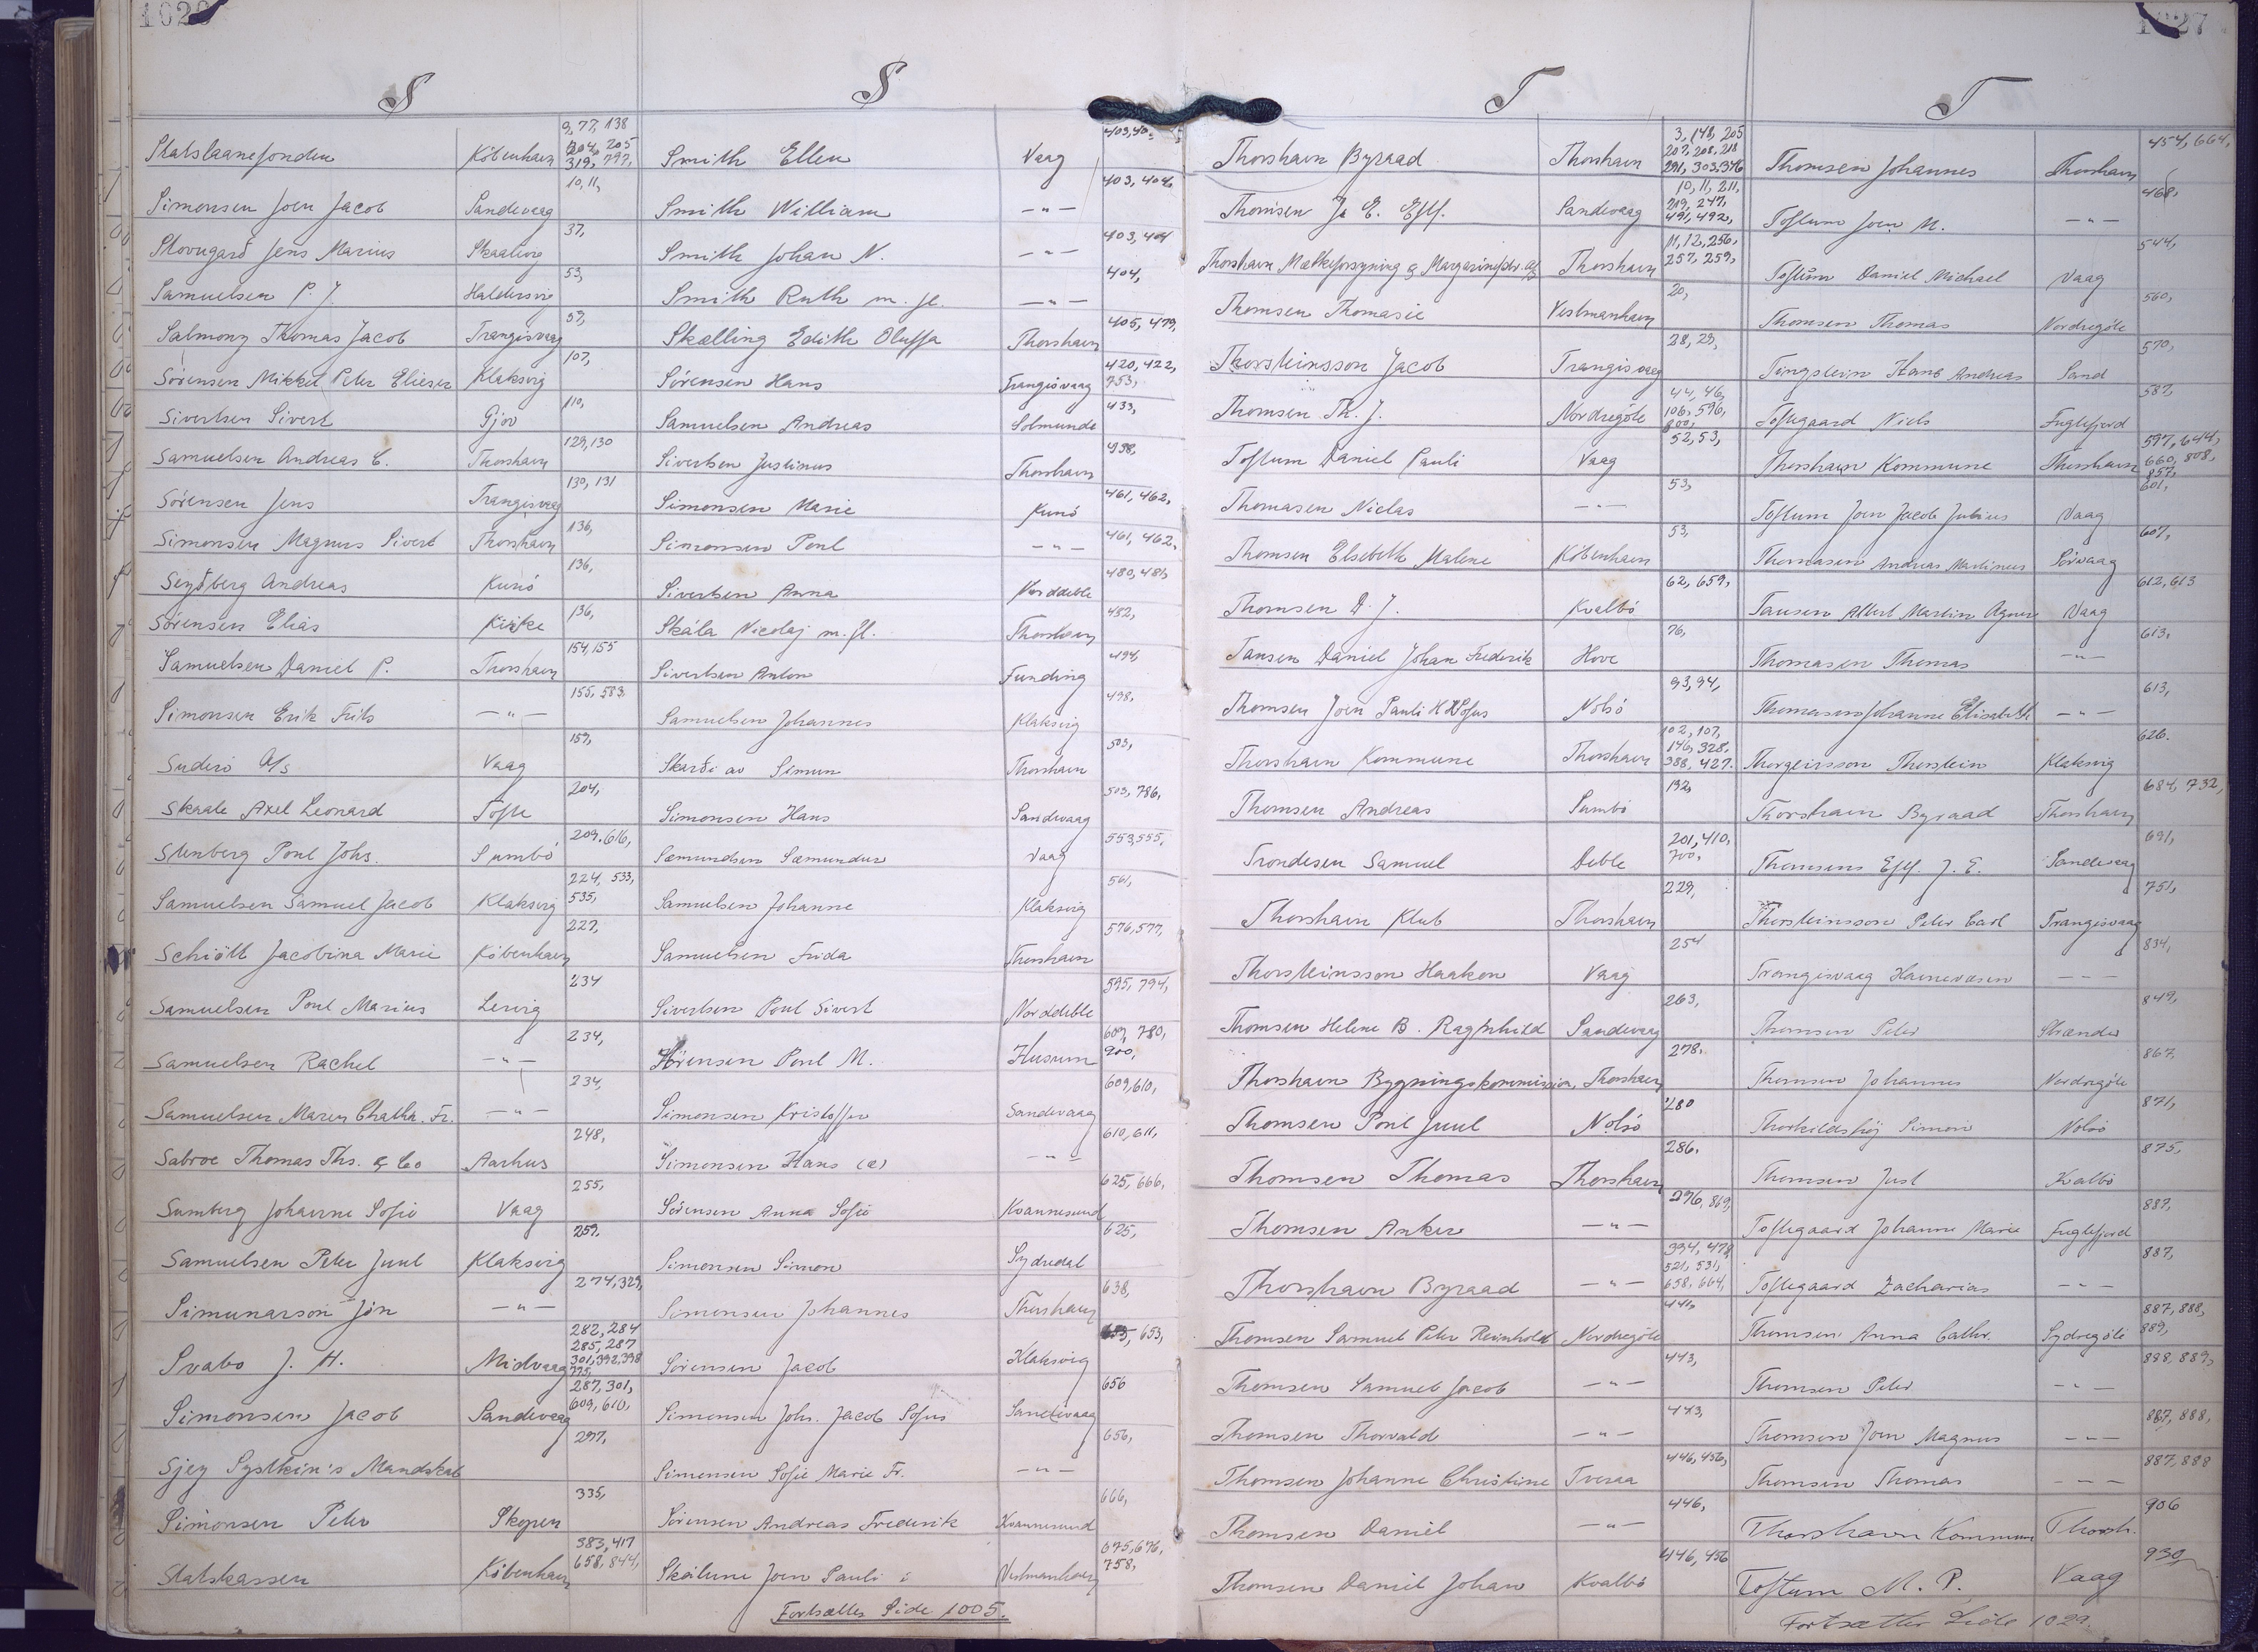 S
Statslaanefonden København 9, 77, 138 204, 205 319, 797,
Simonsen Joen Jacob Sandevaag 10, 11,
Skovugard Jens Marius Skaalevig 37,
Samuelsen P. J. Haldersvig 53,
Salmony Thomas Jacob Trangisvaag 57,
Sörensen Mikkel Peter Elieser Klaksvig 107,
Sivertsen Sivert Gjov 110,
Samuelsen Andreas C. Thorshavn 129, 130
Sörensen Jens Trangisvaag 130, 131
Simonsen Magnus Sivert Thorshavn 136,
Seyðberg Andreas Kunö 136,
Sörensen Elias Kirke 136,
Samuelsen Daniel P. Thorshavn 154, 155
Simonsen Erik Frits —"— 155, 583,
Suderö A/s Vaag 159,
Skaale Axel Leonard Tofte 204,
Stenberg Poul Johs. Sumbö 209, 616,
Samuelsen Samuel Jacob Klaksvig 224, 533, 535,
Schiött Jacobina Marie København 227,
Samuelsen Poul Marius Lervig 234
Samuelsen Rachel —"— 234,
Samuelsen Maren Chatha. Fr. —"— 234,
Sabroe Thomas Ths. & Co Aarhus 248,
Sumberg Johanne Sofie Vaag 255,
Samuelsen Peter Juul Klaksvig 259,
Simunarson Jón —"— 274, 329,
Svabo J. H. Midvaag 282, 284 285, 287 301, 392, 398 775,
Simonsen Jacob Sandevaag 287, 301, 609, 610,
Sjey Systkin's Mandskab 297,
Simonsen Peter Skopen 335,
Statskassen København 383, 417 658, 844,
S
Smith Ellen Vaag 403, 40
Smith William —"— 403, 404,
Smith Johan N. —"— 403, 404
Smith Ruth m. fl. —"— 404,
Skælling Edith Oluffa Thorshavn 405, 479,
Sörensen Hans Trangisvaag 420, 422, 753,
Samuelsen Andreas Solmunde 433,
Sivertsen Justinus Thorshavn 438,
Simonsen Marie Kunö 461, 462,
Simonsen Poul —"— 461, 462,
Sivertsen Anna Norddeble 480, 481,
Skála Nicolaj m. fl. Thorshavn 482,
Sivertsen Anton Funding 494,
Samuelsen Johannes Klaksvig 498,
Skarði av Simun Thorshavn 503,
Simonsen Hans Sandevaag 503, 786,
Sæmundsen Sæmundur Vaag 553, 555,
Samuelsen Johanne Klaksvig 561,
Samuelsen Frida Thorshavn 576, 577,
Sivertsen Poul Sivert Norddeble 595, 794,
Sörensen Poul M. Husum 609, 780, 900,
Simonsen Kristoffer Sandevaag 609, 610,
Simonsen Hans (æ) —"— 610, 611,
Sörensen Anna Sofie Kvannesund 625, 666,
Simonsen Simon Sydredal 625,
Simonsen Johannes Thorshavn 638,
Sörensen Jacob Klaksvig 653,
Simonsen Johs. Jacob Sofus Sandevaag 656
Simonsen Sofie Marie Fr. —"— 656,
Sörensen Andreas Frederik Kvannesund 666,
Skeilune Joen Pauli i Vestmanhavn 675, 676, 758,
Fortsættes Side 1005.
T
Thorshavn Byraad Thorshavn 3, 148, 205 207, 208, 218 291, 303, 376
Thomsen J. E. Eftf. Sandevaag 10, 11, 211, 219, 247, 491, 492,
Thorshavn Mælkeforsyning & Margarinefabr. A/s Thorshavn 11, 12, 256, 257, 259,
Thomsen Thomasie Vestmanhavn 20,
Thorsteinsson Jacob Trangisvaag 28, 29,
Thomsen Th. J. Nordregöte 44, 46, 106, 596, 800,
Toftum Daniel Pauli Vaag 52, 53,
Thomasen Niclas —"— 53,
Thomsen Elsebeth Malene København 53,
Thomsen D. J. Kvalbö 62, 659,
Tausen Daniel Johan Frederik Hove 76,
Thomsen Joen Pauli K Sofus Nolsö 93, 94,
Thorshavn Kommune Thorshavn 102, 107, 146, 328, 388, 427.
Thomsen Andreas Sumbö 192,
Trondesen Samuel Deble 201, 410, 700,
Thorshavn Klub Thorshavn 229,
Thorsteinsson Haakon Vaag 254
Thomsen Helene B. Ragnhild Sandevaag 263,
Thorshavn Bygningskommission, Thorshavn 278.
Thomsen Poul Juul Nolsö 280
Thomsen Thomas Thorshavn 286.
Thomsen Anker —"— 296, 869,
Thorshavn Byraad —"— 394, 478, 521, 531, 658, 664,
Thomsen Samuel Peter Reinhold Nordregöte 441,
Thomsen Samuel Jacob —"— 443,
Thomsen Thorvald —"— 443,
Thomsen Johanne Christine Tveraa 446, 456,
Thomsen Daniel —"— 446,
Thomsen Daniel Johan Kvalbö 446, 456
T
Thomsen Johannes Thorshavn 454, 664,
Toftum Joen M. —"— 468,
Toftum Daniel Michael Vaag 544,
Thomsen Thomas Nordregöte 560,
Tingstein Hans Andreas Sand 570,
Toftegaard Niels Fuglefjord 587,
Thorshavn Kommune Thorshavn 597, 644, 660, 808, 857,
Toftum Joen Jacob Julius Vaag 601,
Thomasen Andreas Martinus Sörvaag 607,
Tausen Albert Martin Agnar Vaag 612, 613
Thomasen Thomas —"— 613,
Thomasen Johanne Elisabeth —"— 613,
Thorgeirsson Thorstein Klaksvig 626.
Thorshavn Byraad Thorshavn 684, 732,
Thomsens Eftf. J. E. Sandevaag 691,
Thorsteinsson Peter Carl Trangisvaag 751,
Trangisvaag Havnevæsen —"— 834,
Thomsen Peter Strænder 849,
Thomsen Johannes Nordregöte 867,
Thorkildshöj Simon Nolsö 871,
Thomsen Just Kvalbö 875,
Toftegaard Johanne Marie Fuglefjord 887,
Toftegaard Zacharias —"— 887,
Thomsen Anna Cathr. Sydregöte 887, 888, 889,
Thomsen Peter —"— 888, 889,
Thomsen Joen Magnus —"— 887, 888,
Thomsen Thomas —"— 887, 888
Thorshavn Kommun Thorsh. 906
Toftum M. P. Vaag 930,
Fortsætter Side 1029.